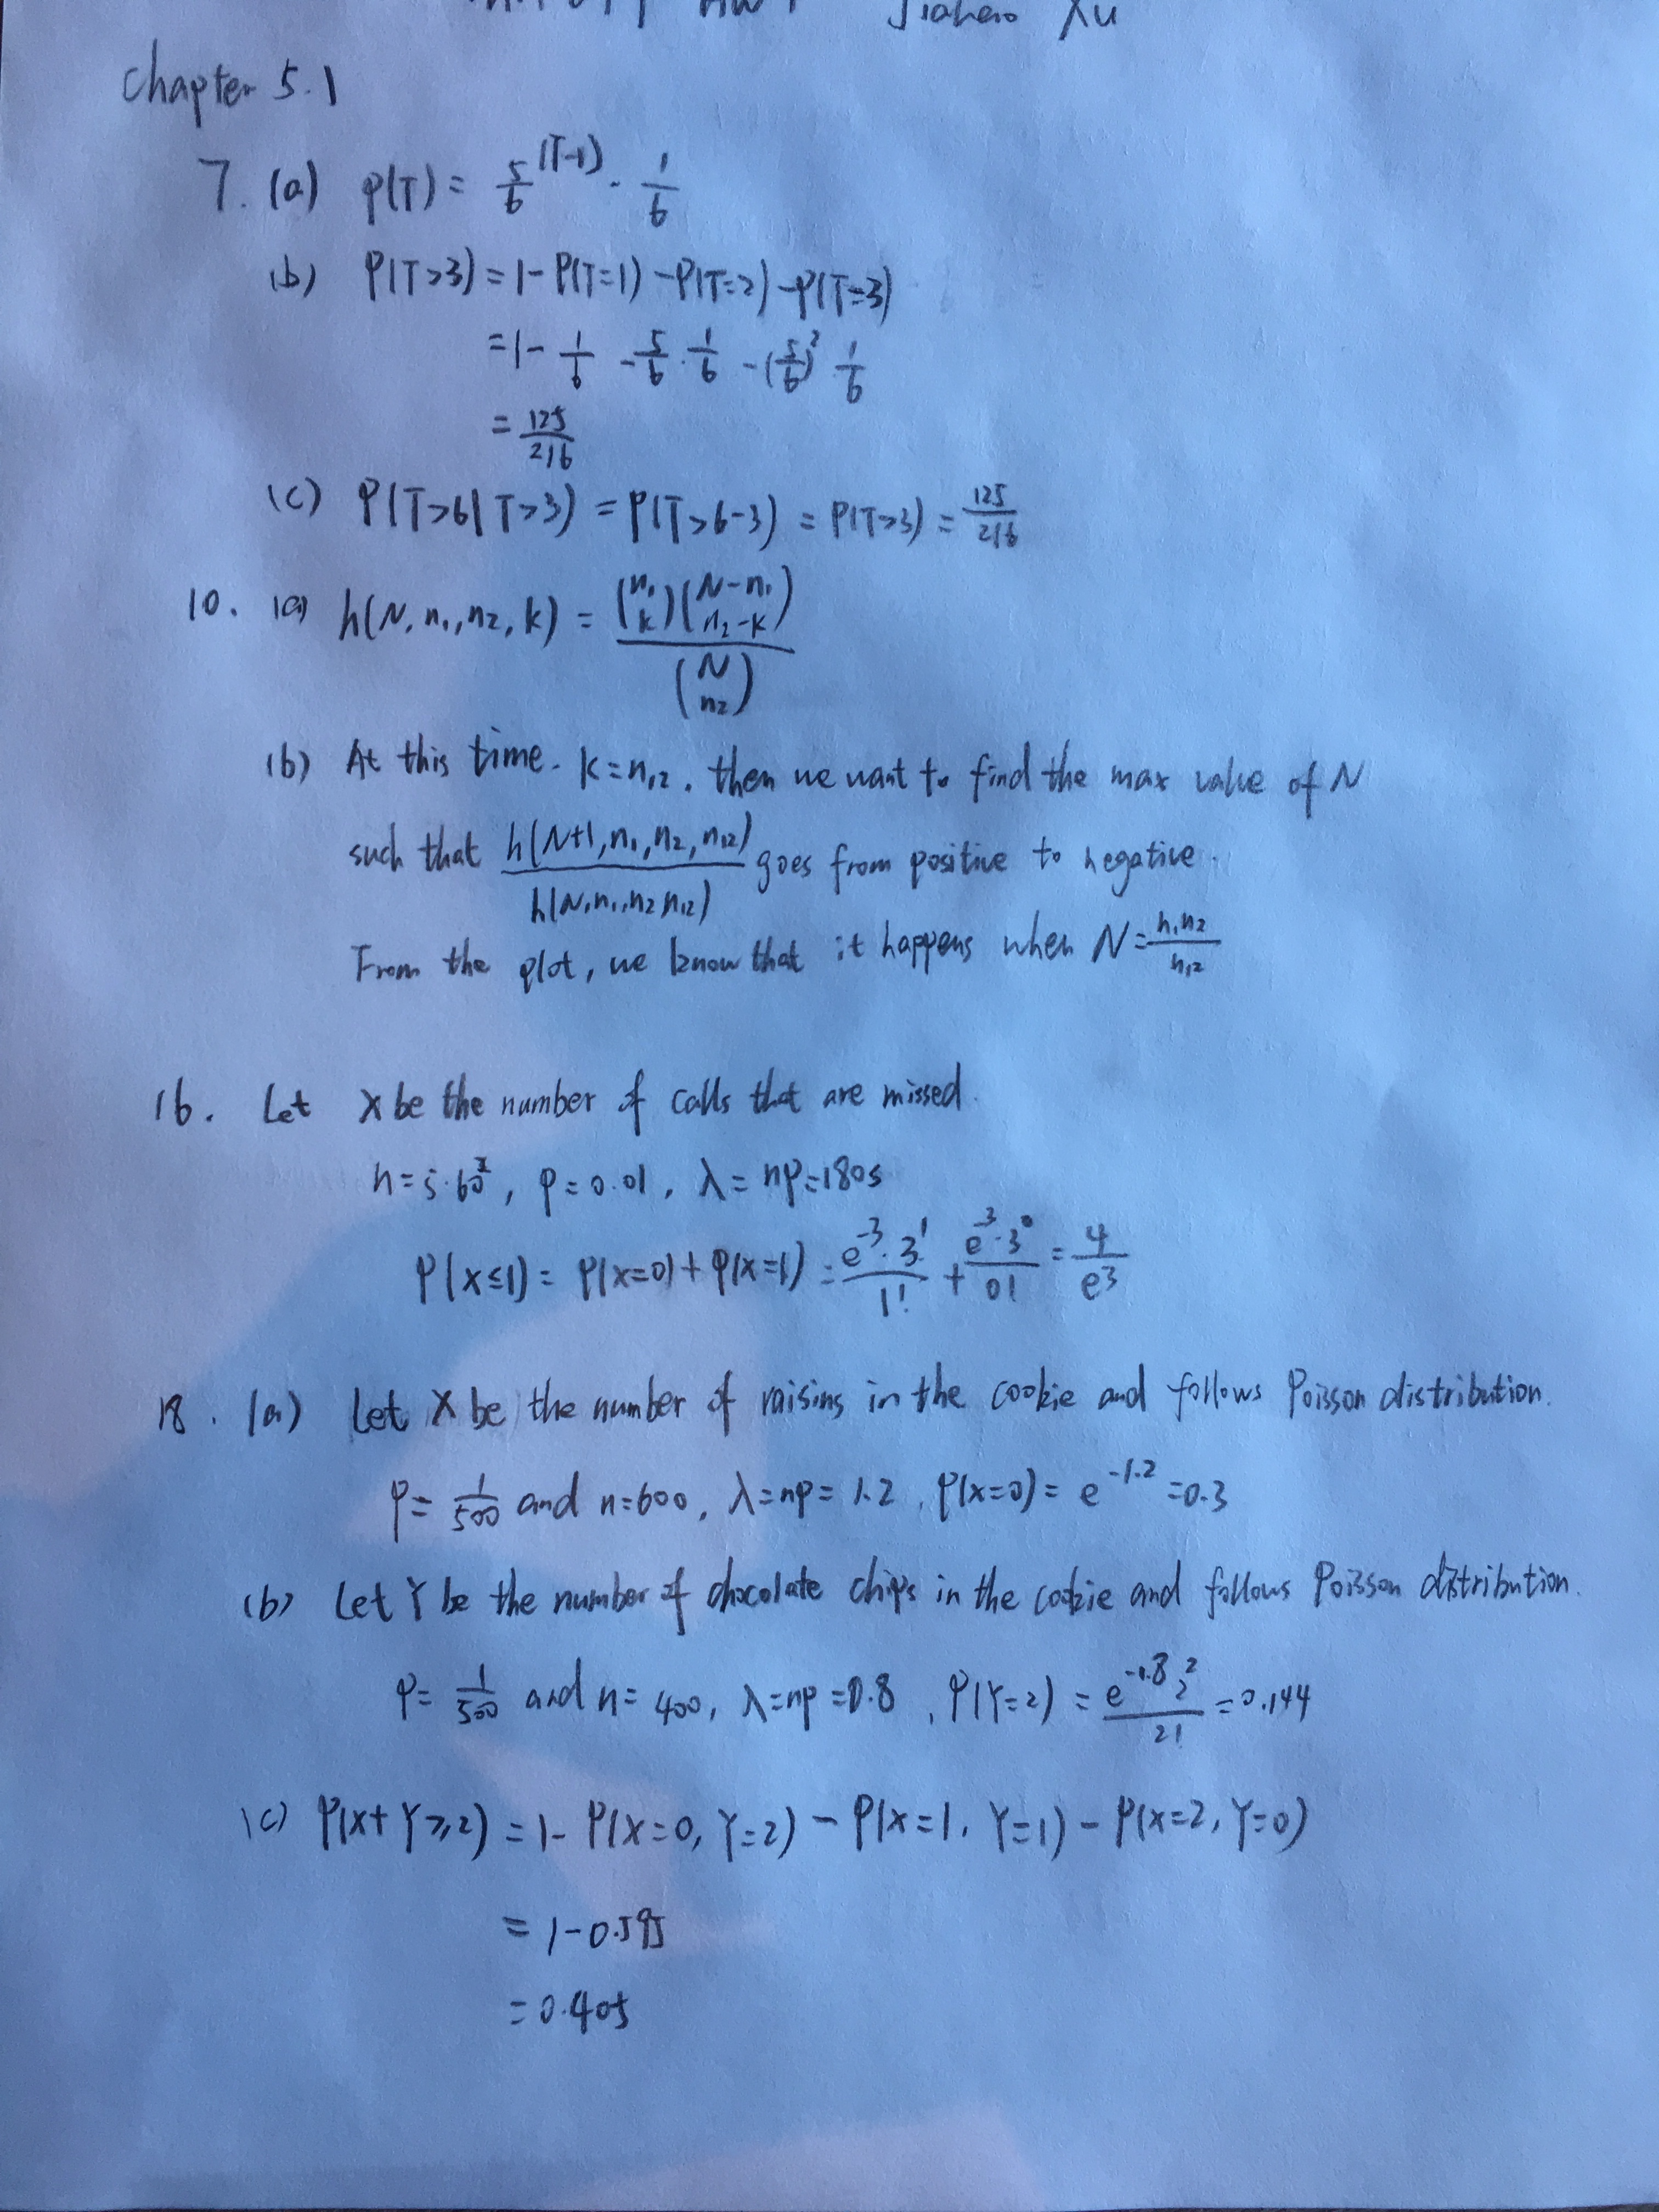 HW Jiahao Xu
Chapter 5.1
7. (a) P(T) = 5/6^(T-1) · 1/6
(b) P(T>3) = 1 - P(T=1) - P(T=2) - P(T=3)
= 1 - 1/6 - 5/6 · 1/6 - (5/6)^2 1/6
= 125/216
(c) P(T>6|T>3) = P(T>6-3) = P(T>3) = 125/216
10. (a) h(N, n₁, n₂, k) = (n₁ k)(N-n₁ n₂-k) / (N n₂)
(b) At this time. k=n₁₂. then we want to find the max value of N
such that h(N+1, n₁, n₂, n₁₂) / h(N, n₁, n₂ n₁₂) goes from positive to negative.
From the plot, we know that it happens when N = n₁n₂/n₁₂
16. Let X be the number of calls that are missed.
n=5·60², p=0.01, λ=np=180s
P(X≤1) = P(X=0) + P(X=1) = e^-3 · 3^1 / 1! + e^-3 · 3^0 / 0! = 4/e^3
18. (a) Let X be the number of raisins in the cookie and follows Poisson distribution.
P = 1/500 and n=600, λ=np=1.2, P(X=0) = e^-1.2 = 0.3
(b) Let Y be the number of chocolate chips in the cookie and follows Poisson distribution.
P = 1/500 and n=400, λ=np=0.8, P(Y=2) = e^-0.8 2^2 / 2! = 0.144
(c) P(X+Y≥2) = 1 - P(X=0, Y=2) - P(X=1, Y=1) - P(X=2, Y=0)
= 1-0.595
= 0.405